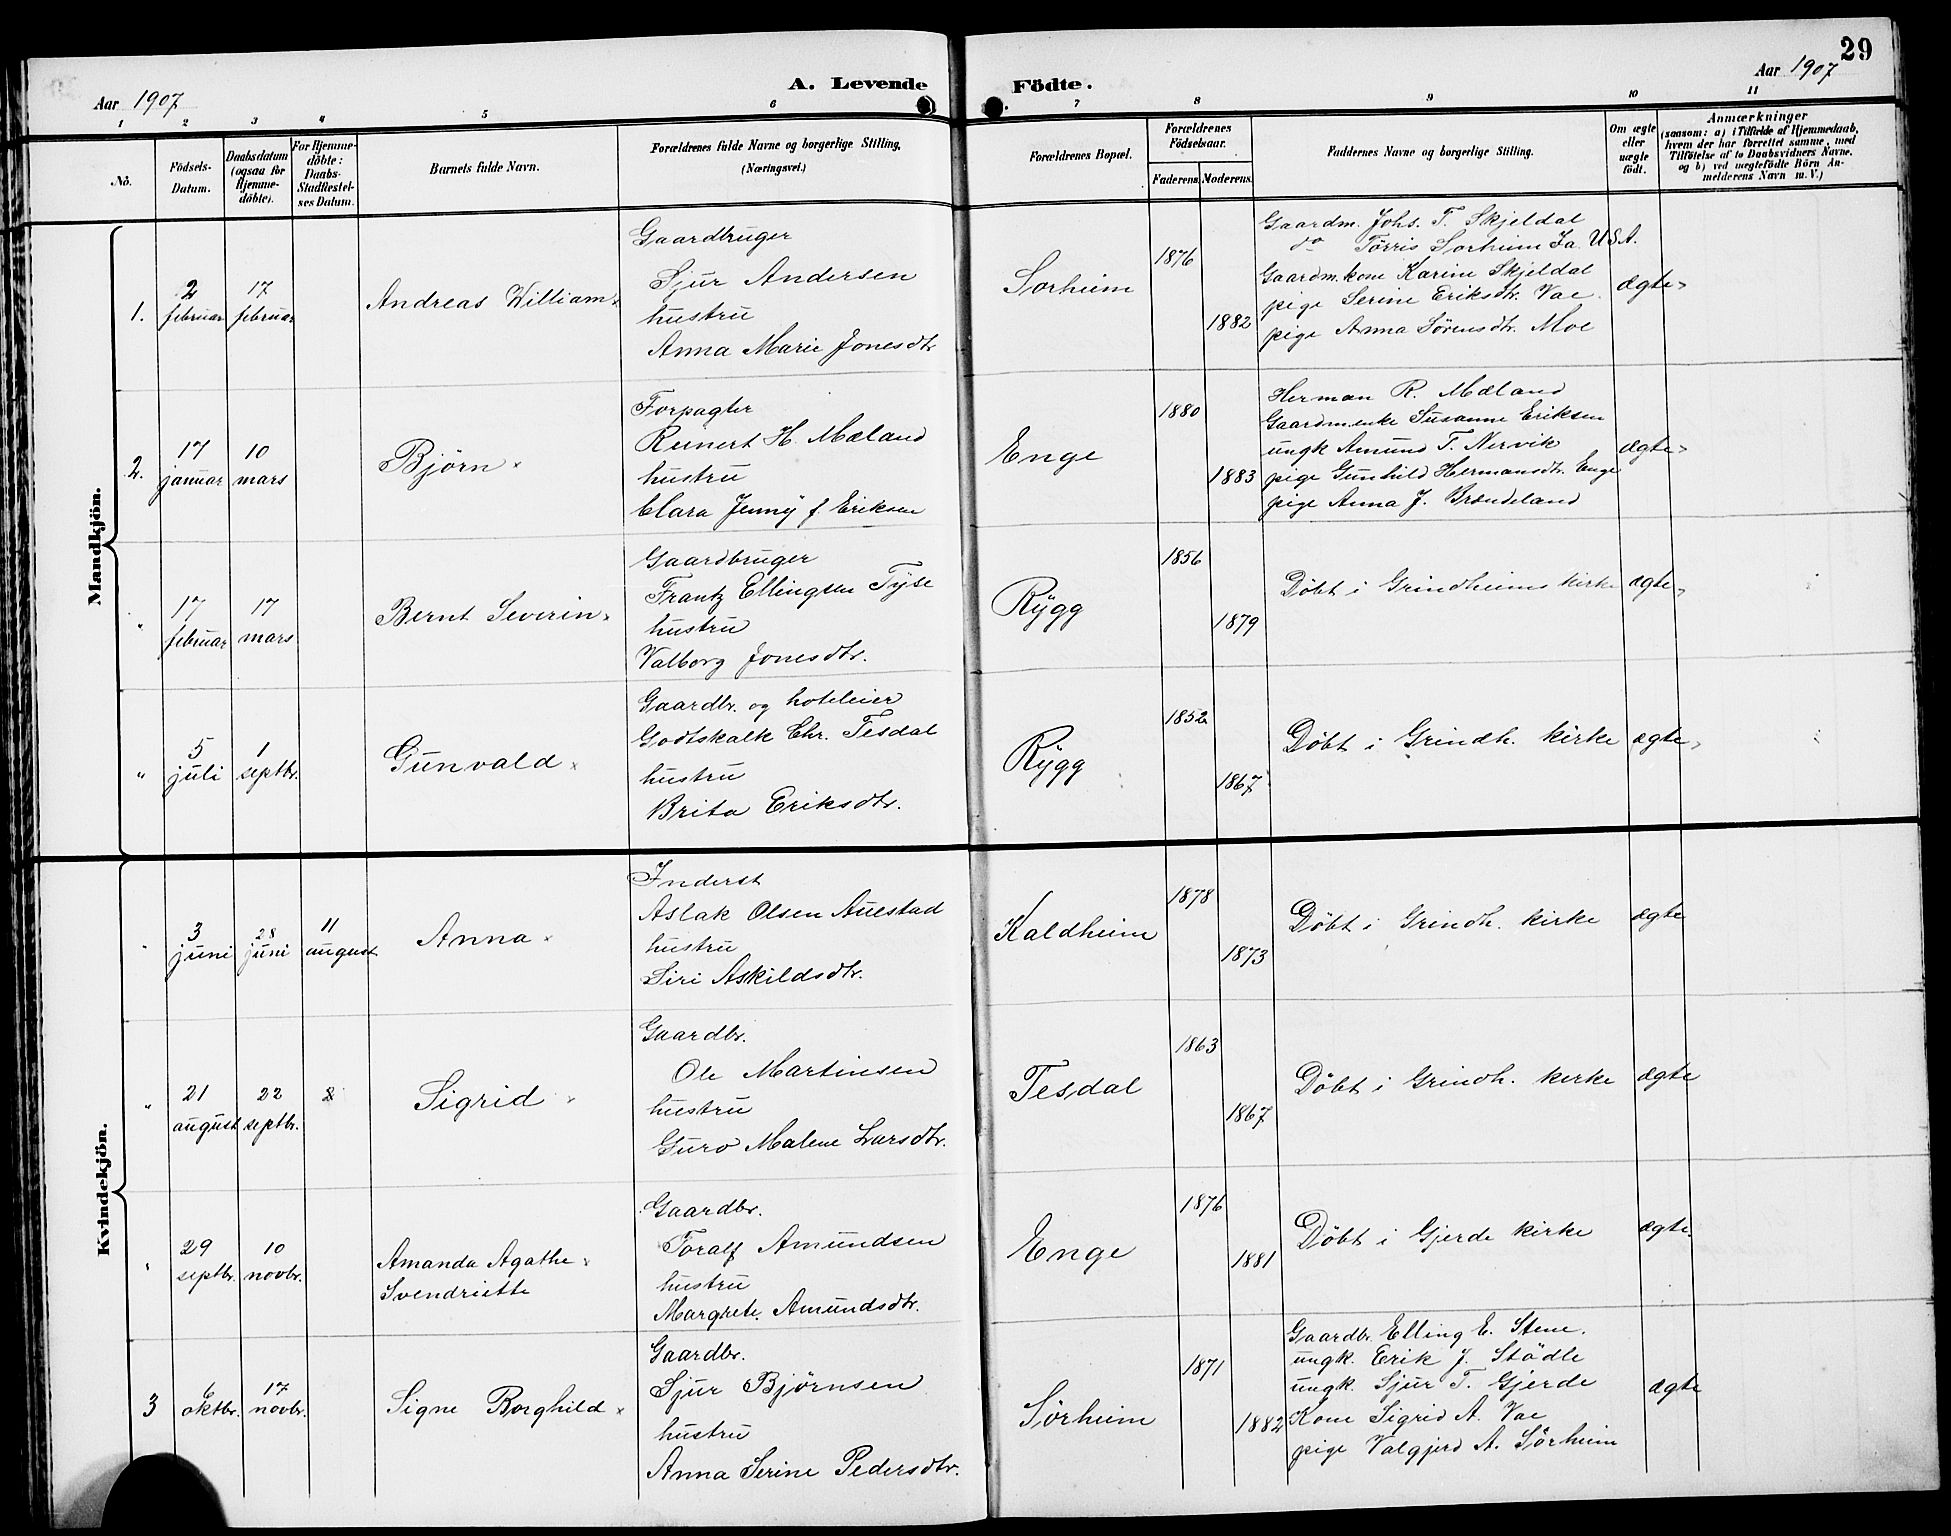 29
Aar 1907
A. Levende Födte.
Aar 1907
1 2 3 4 5 6 7 8 9 10 11
No.
Födsels-Datum.
Daabsdatum (ogsaa for Hjemme-döbte).
For Hjemme-döbte: Daabs-Stadfæstel-ses Datum.
Barnets fulde Navn.
Forældrenes fulde Navne og borgerlige Stilling.
(Næringsvei.)
Forældrenes Bopæl.
Forældrenes Födselsaar.
Faderens. Moderens.
Faddernes Navne og borgerlige Stilling.
Om ægte eller uægte födt.
Anmærkninger
(saasom: a) i Tilfælde af Hjemmedaab,
hvem der har forrettet samme, med
Tilföielse af to Daabsvidners Navne.
og b) ved uægtefödte Börn An-
melderens Navn m. V.)
Mandkjön.
1.
2 februar
17 februar
Andreas William
Gaardbruger
Sjur Andersen
hustru
Anna Marie Jonesdtr
Sorheim
1876
1882
Gaardm. Johs. T. Skjeldal
do Tørris Sorheim Ja. USA.
Gaardm.kone Karine Skjeldal
pige Serine Eriksdtr. Vae.
pige Anna Sørensdtr. Moe
ægte
2.
17 januar
10 mars
Bjørn
Forpagter
Reinert H. Mæland
hustru
Clara Jenny f. Eriksen
Enge
1880
1883
Herman R. Mæland
Gaardm.enke Susanne Eriksen
ungk Amund T. Nervik
pige Gunhild Hermansdtr. Enge
pige Anna J. Brændeland
ægte
"
17 februar
17 mars
Bernt Severin
Gaardbruger
Frantz Ellingsen Tyse
hustru
Valborg Jonesdtr.
Rygg
1856
1879
Døbt i Grindheims kirke
ægte
"
5 juli
1 septbr.
Gunvald
Gaardbr. og hoteleier
Godtskalk Chr. Tesdal
hustru
Brita Eriksdtr.
Rygg
1852
1867
Døbt i Grindh. kirke
ægte
Kvindekjön.
"
3 juni
28 juni
11 august
Anna
Inderst
Aslak Olsen Auestad
hustru
Siri Askildsdtr.
Kaldheim
1878
1873
Døbt i Grindh. kirke
ægte
"
21 august
22 septbr.
Sigrid
Gaardbr.
Ole Martinsen
hustru
Guro Malene Larsdtr.
Tesdal
1863
1867
Døbt i Grindh. kirke
ægte
"
29 septbr.
10 novbr.
Amanda Agathe
Svendriette
Gaardbr.
Toralf Amundsen
hustru
Margrete Amundsdtr.
Enge
1876
1881
Døbt i Gjerde kirke
ægte
3
6 oktbr.
17 novbr.
Signe Borghild
Gaardbr.
Sjur Bjørnsen
hustru
Anna Serine Pedersdtr.
Sørheim
1871
1882
Gaardbr. Elling E. Stene.
ungk. Erik J. Stødle
ungk. Sjur T. Gjerde
Kone Sigrid A. Vae
pige Valgjerd A. Sørheim
ægte